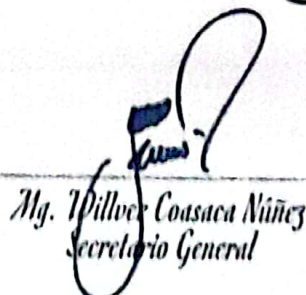 Mg. Willver Coasaca Núñez
Secretario General